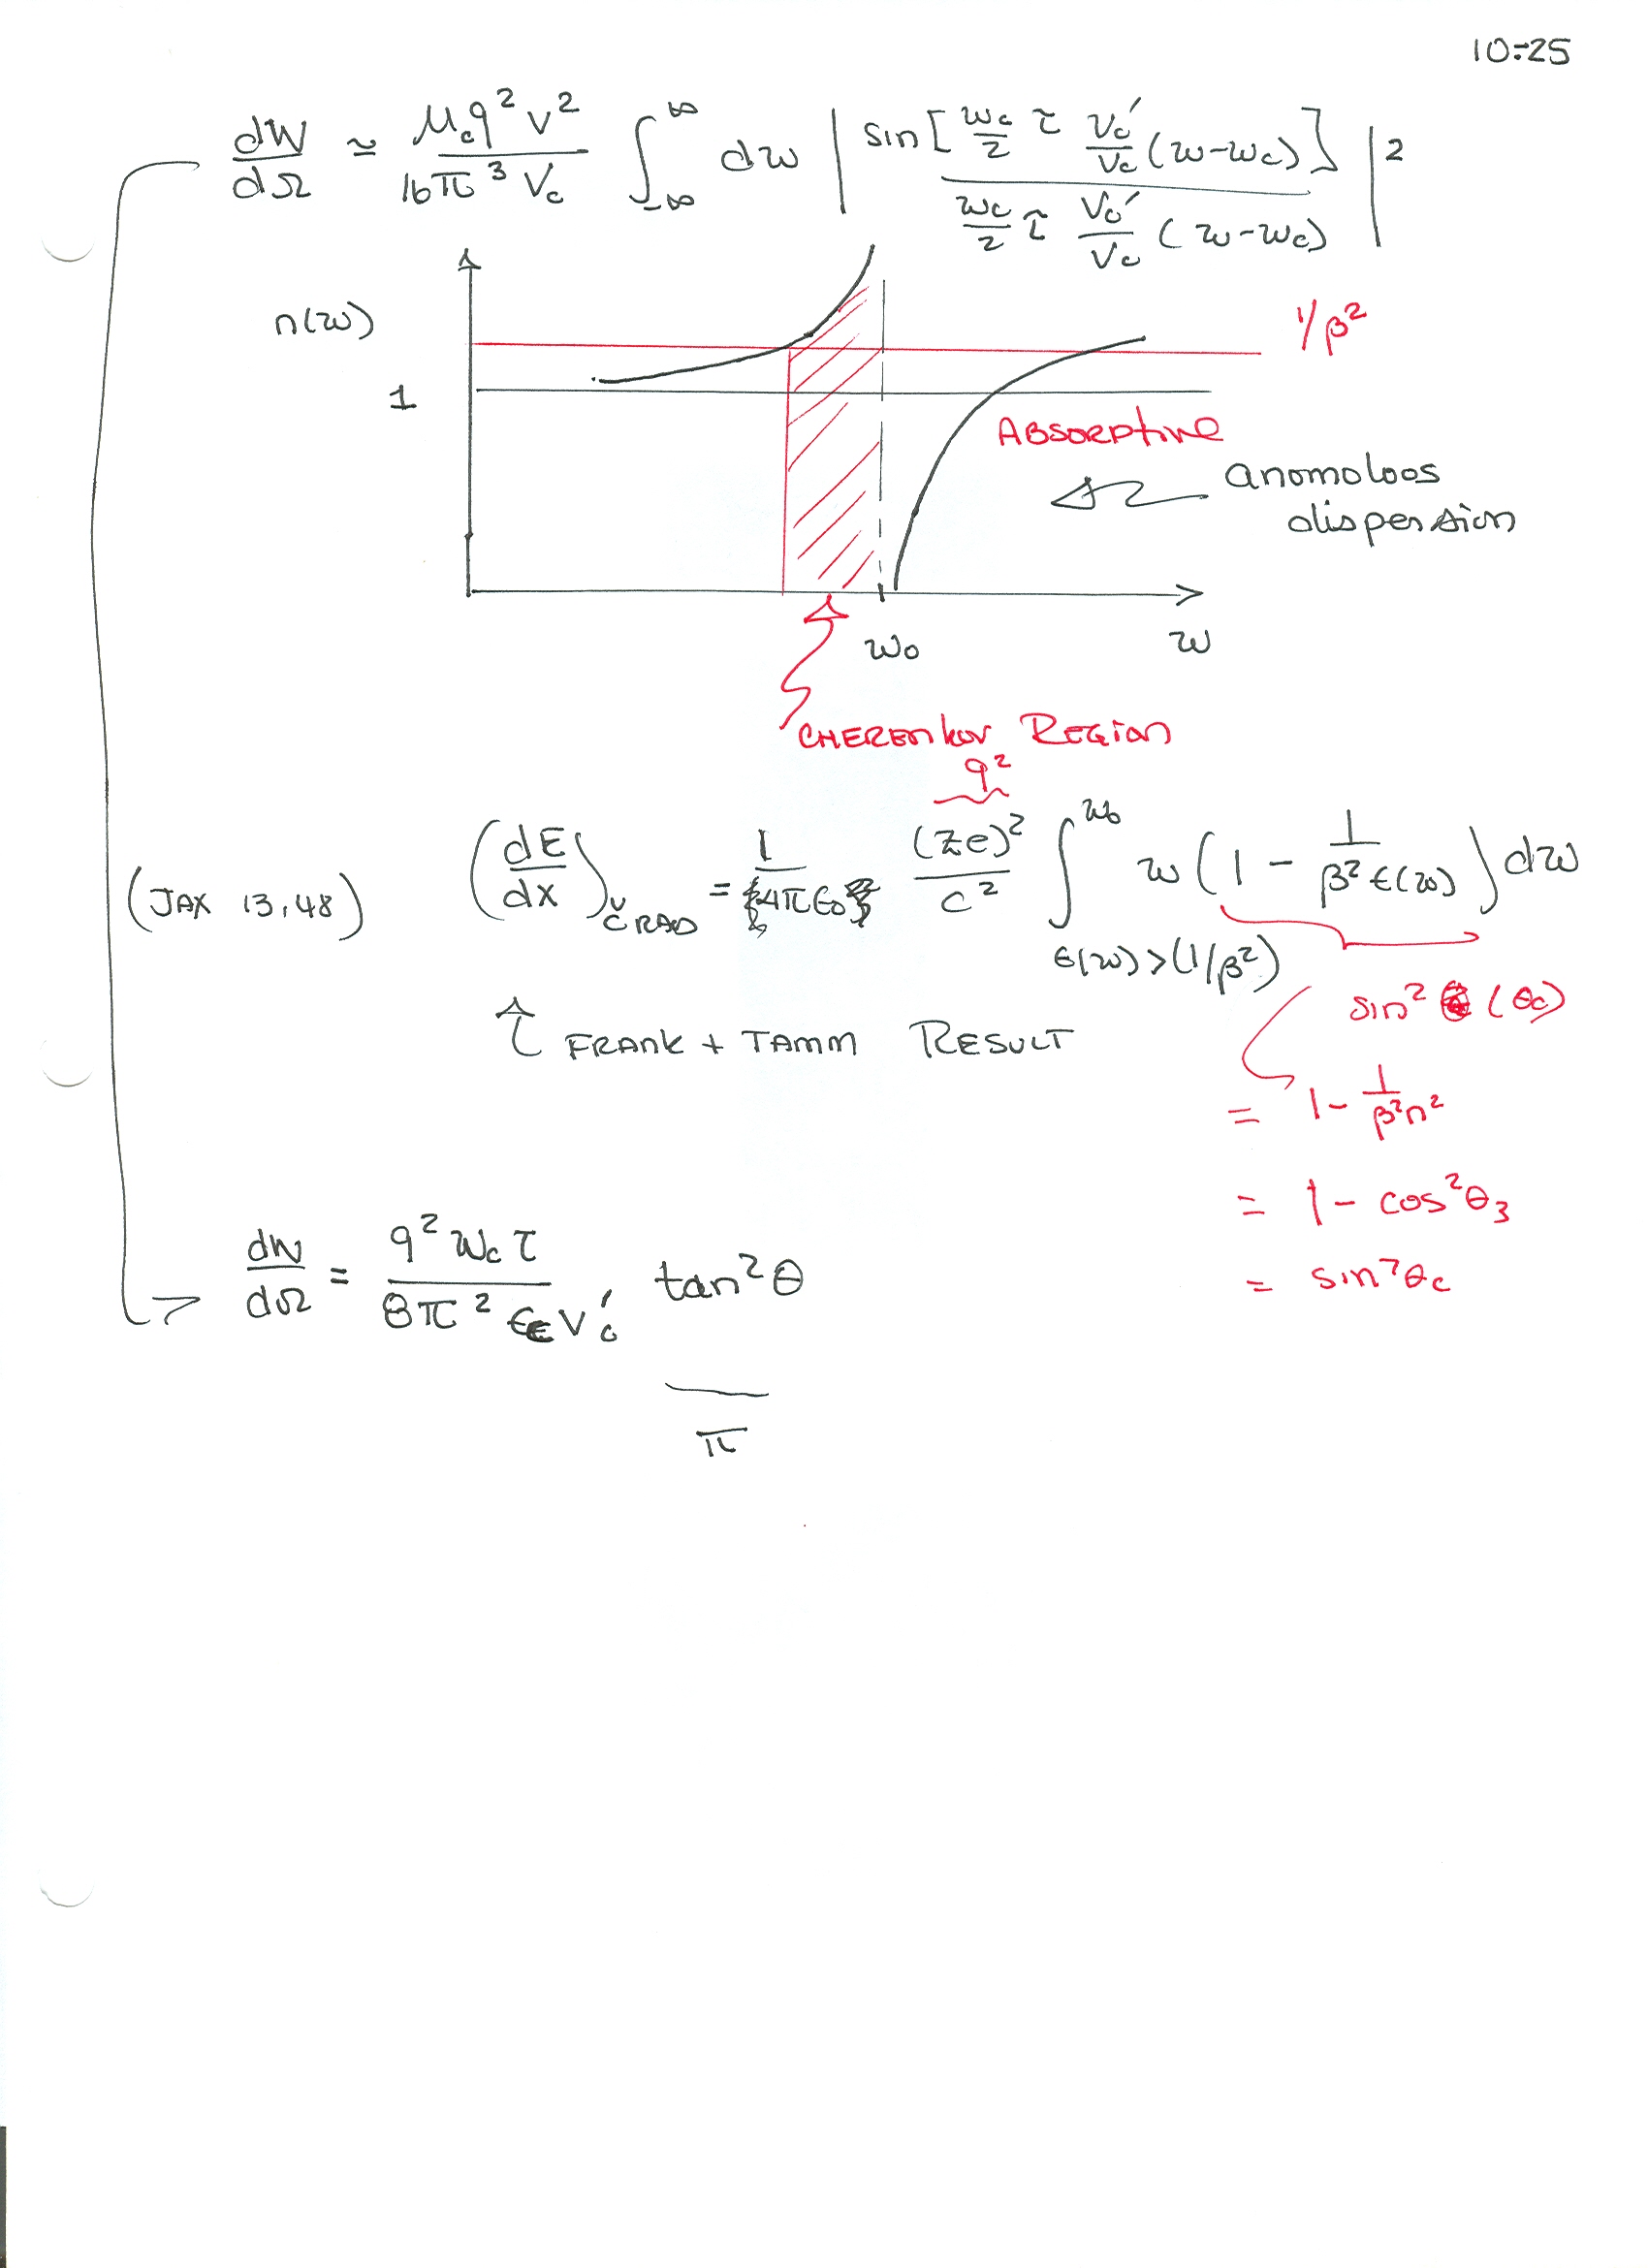 10-25
dW/dΩ ≃ μ_c q² v² / 16π³ v_c ∫_{-∞}^{∞} dω | sin[ ω_c/2 τ v_c'/v_c (ω-ω_c) ] / ω_c/2 τ v_c'/v_c (ω-ω_c) |²
n(ω)
1/β²
1
Absorptive
anomoloos
dispersion
ω₀
ω
CHERENKOV REGION
q²
(JAX 13.48) (dE/dx)_{Č RAD} = 1/{4πε₀} (ze)²/c² ∫_{ε(ω)>(1/β²)}^{ω₀} ω (1 - 1/β²ε(ω)) dω
sin² (θc)
FRANK + TAMM RESULT
= 1 - 1/β²n²
= 1 - cos²θ₃
= sin²θc
dW/dΩ = q² ω_c τ / 8π² ε_c v_c' tan²θ
π